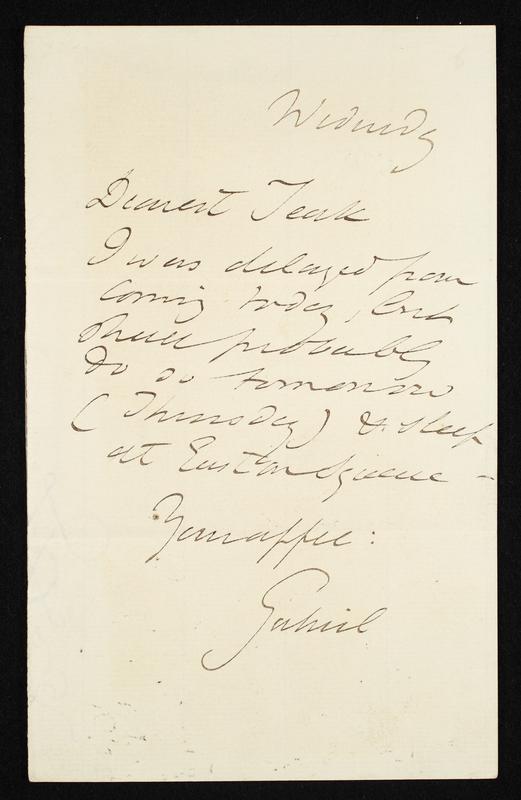 Wednesday
Dearest Teak
I was delayed from
coming today, but
shall probably
do so tomorrow
(Thursday) & sleep
at Euston Square –
Your affec:
Gabriel